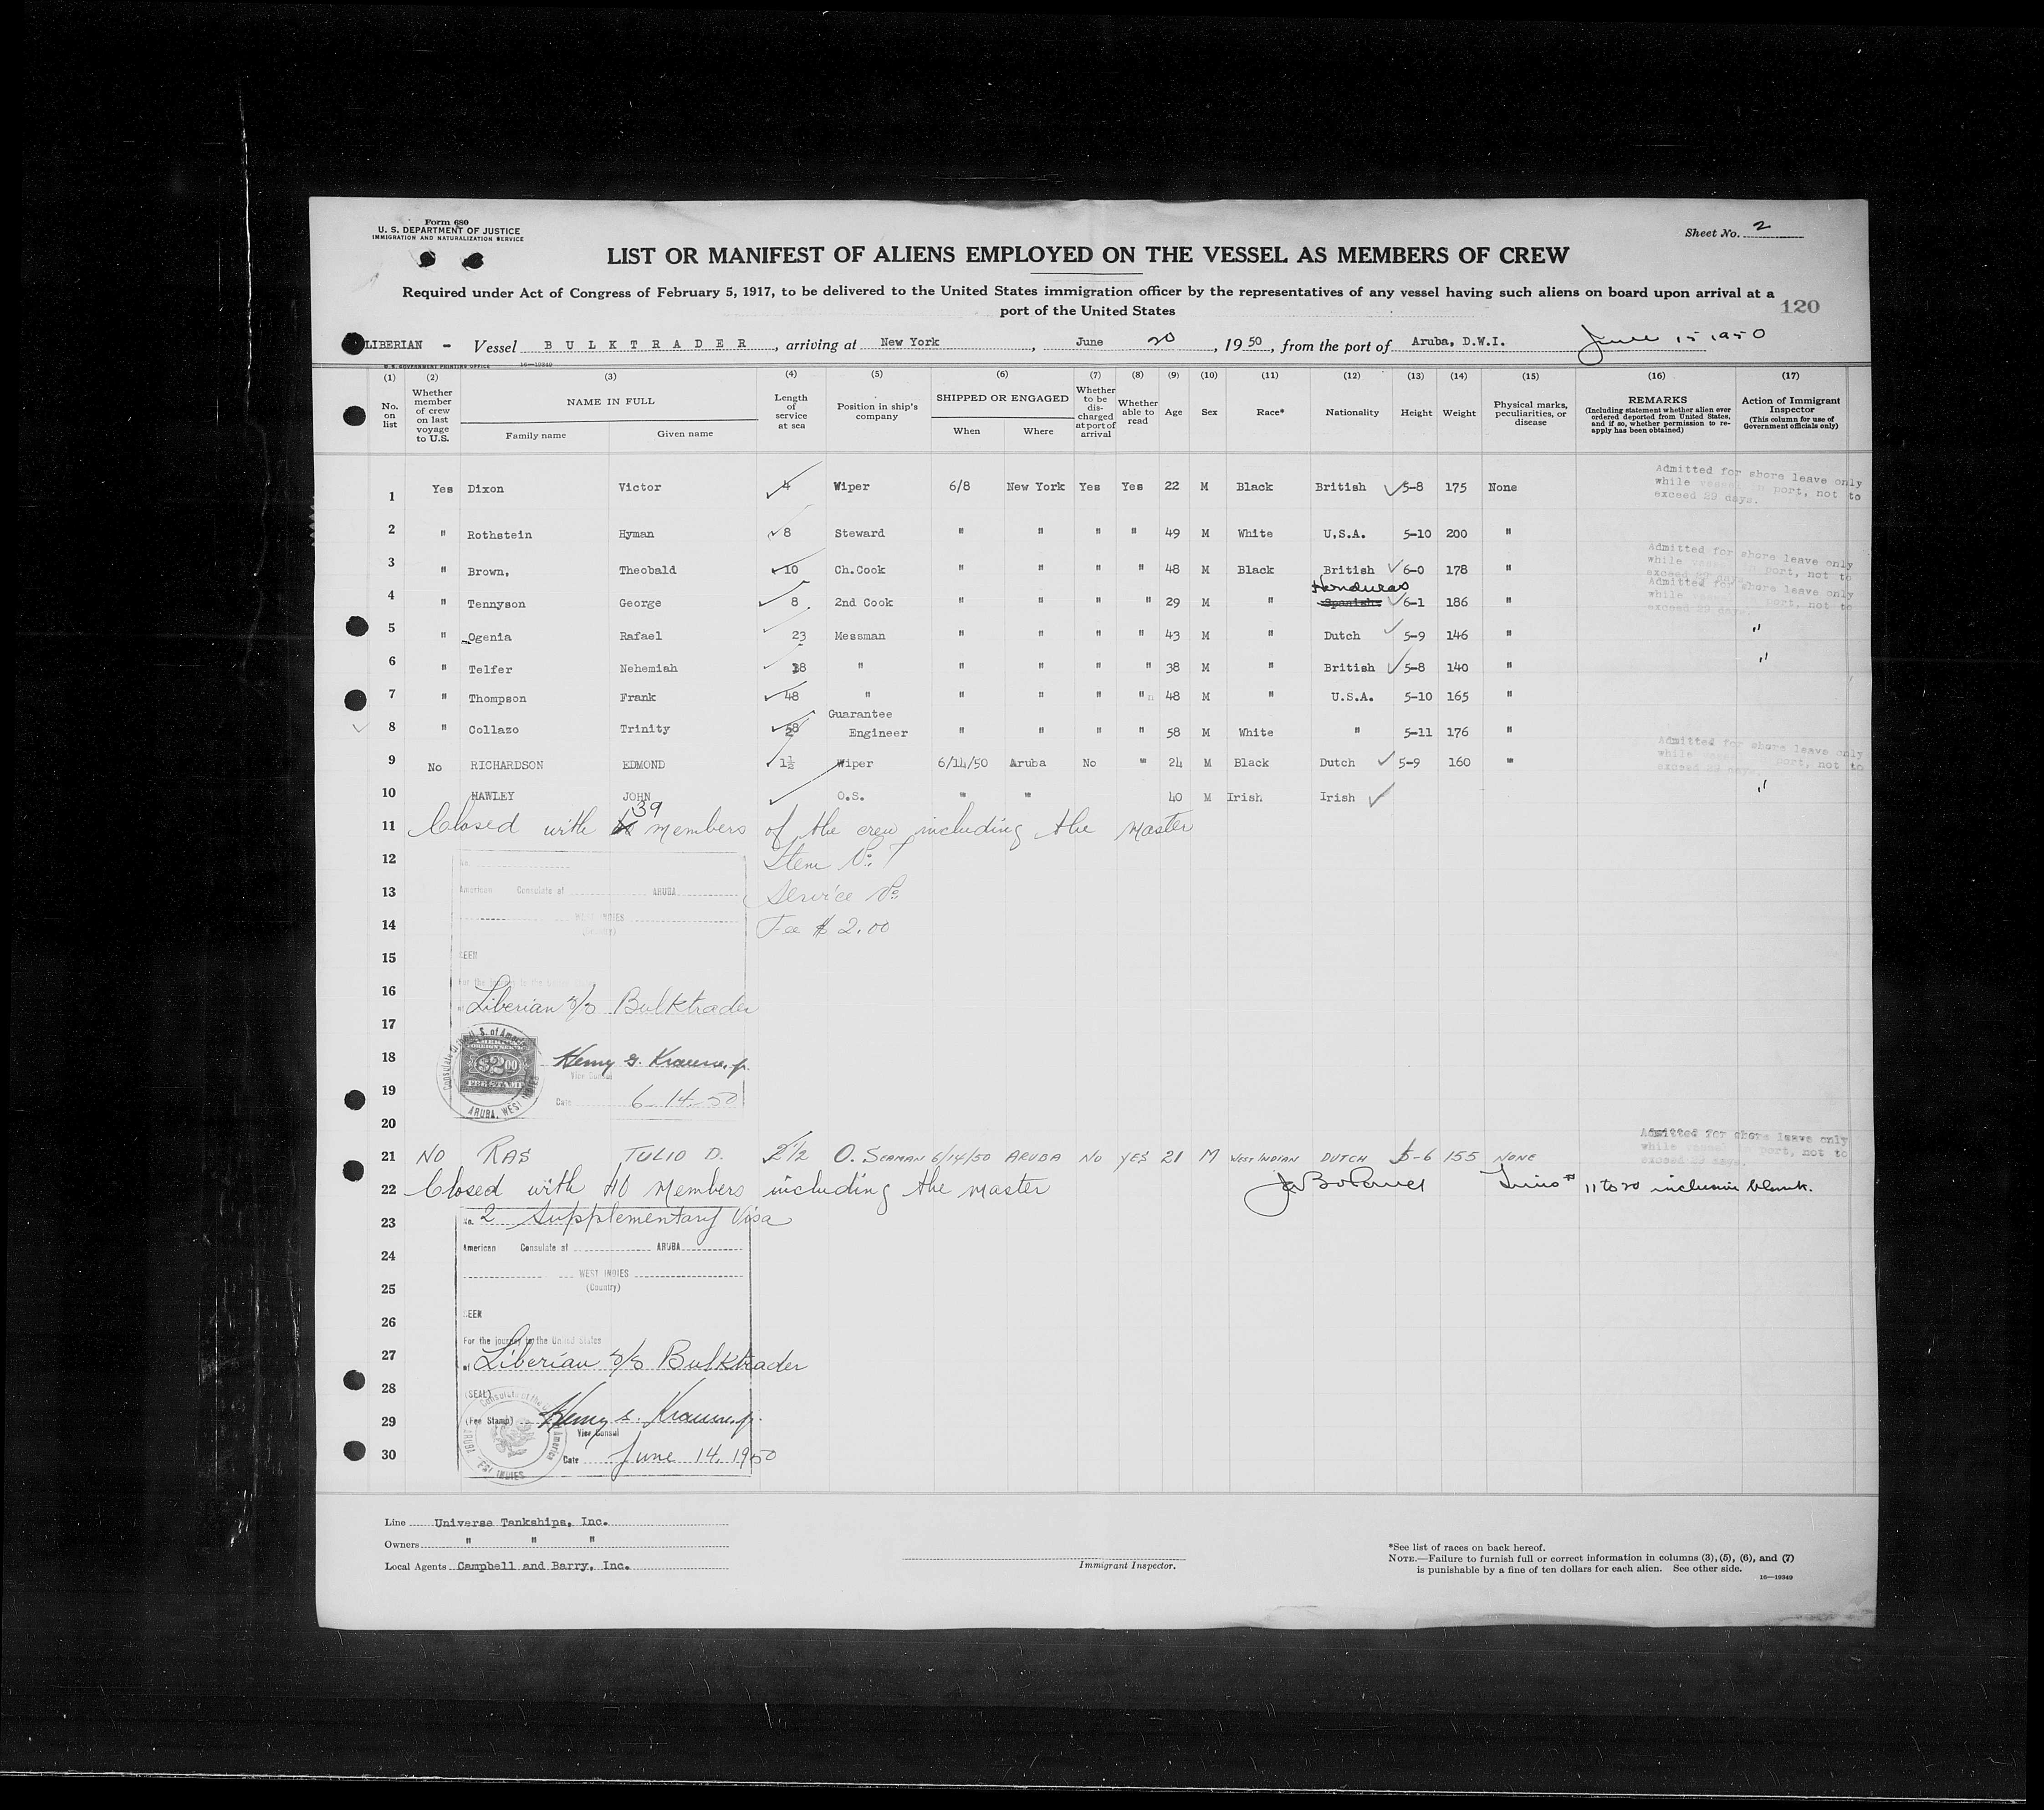 Form 680
U. S. DEPARTMENT OF JUSTICE
IMMIGRATION AND NATURALIZATION SERVICE
Sheet No. 2
LIST OR MANIFEST OF ALIENS EMPLOYED ON THE VESSEL AS MEMBERS OF CREW
Required under Act of Congress of February 5, 1917, to be delivered to the United States immigration officer by the representatives of any vessel having such aliens on board upon arrival at a
port of the United States
120
LIBERIAN - Vessel BULKTRADER, arriving at New York, June 20, 1950, from the port of Aruba, D.W.I. June 15 1950
U.S. GOVERNMENT PRINTING OFFICE 16—19349
(1) (2) (3) (4) (5) (6) (7) (8) (9) (10) (11) (12) (13) (14) (15) (16) (17)
No. on list
Whether member of crew on last voyage to U.S.
NAME IN FULL
Family name Given name
Length of service at sea
Position in ship's company
SHIPPED OR ENGAGED
When Where
Whether to be discharged at port of arrival
Whether able to read
Age
Sex
Race*
Nationality
Height
Weight
Physical marks, peculiarities, or disease
REMARKS
(Including statement whether alien ever ordered deported from United States, and if so, whether permission to reapply has been obtained)
Action of Immigrant Inspector
(This column for use of Government officials only)
1 Yes Dixon Victor 4 Wiper 6/8 New York Yes Yes 22 M Black British 5-8 175 None Admitted for shore leave only while vessel in port, not to exceed 29 days.
2 " Rothstein Hyman 8 Steward " " " " 49 M White U.S.A. 5-10 200 "
3 " Brown, Theobald 10 Ch.Cook " " " " 48 M Black British 6-0 178 " Admitted for shore leave only while vessel in port, not to exceed 29 days.
Honduras
4 " Tennyson George 8 2nd Cook " " " " 29 M " Spanish 6-1 186 " Admitted for shore leave only while vessel in port, not to exceed 29 days.
5 " Ogenia Rafael 23 Messman " " " " 43 M " Dutch 5-9 146 " "
6 " Telfer Nehemiah 18 " " " " " 38 M " British 5-8 140 " "
7 " Thompson Frank 48 " " " " " 48 M " U.S.A. 5-10 165 "
8 " Collazo Trinity 28 Guarantee Engineer " " " " 58 M White " 5-11 176 "
9 No RICHARDSON EDMOND 1½ Wiper 6/14/50 Aruba No " 24 M Black Dutch 5-9 160 " Admitted for shore leave only while vessel in port, not to exceed 29 days.
10 HAWLEY JOHN O.S. " " 40 M Irish Irish "
11 Closed with 39 members of the crew including the Master
12 No. Item No. 7
13 American Consulate at ARUBA Service No.
14 WEST INDIES Fee $ 2.00
(Country)
15 SEEN
16 of Liberian s/s Bulktrader
17
Consulate of the U. S. of America
AMERICAN FOREIGN SERVICE
$2.00
FEE STAMP
ARUBA, WEST INDIES
18 Henry G. Krausse, jr.
Vice Consul
19 Date 6-14-50
20
21 NO RAS TULIO D. 2 1/2 O. SEAMAN 6/14/50 ARUBA NO YES 21 M WEST INDIAN DUTCH 5-6 155 NONE Admitted for shore leave only while vessel in port, not to exceed 29 days.
22 Closed with 40 Members including the Master Lines # 11 to 20 inclusive blank.
23 No. 2 Supplementary Visa
24 American Consulate at ARUBA
WEST INDIES
25 (Country)
26 SEEN
For the journey to the United States
27 of Liberian s/s Bulktrader
28 (SEAL)
29 (Fee Stamp) Henry G. Krausse, jr.
Vice Consul
30 Date June 14, 1950
Line Universe Tankships, Inc.
Owners " " "
Local Agents Campbell and Barry, Inc.
Immigrant Inspector.
*See list of races on back hereof.
NOTE.—Failure to furnish full or correct information in columns (3), (5), (6), and (7)
is punishable by a fine of ten dollars for each alien. See other side.
16—19349